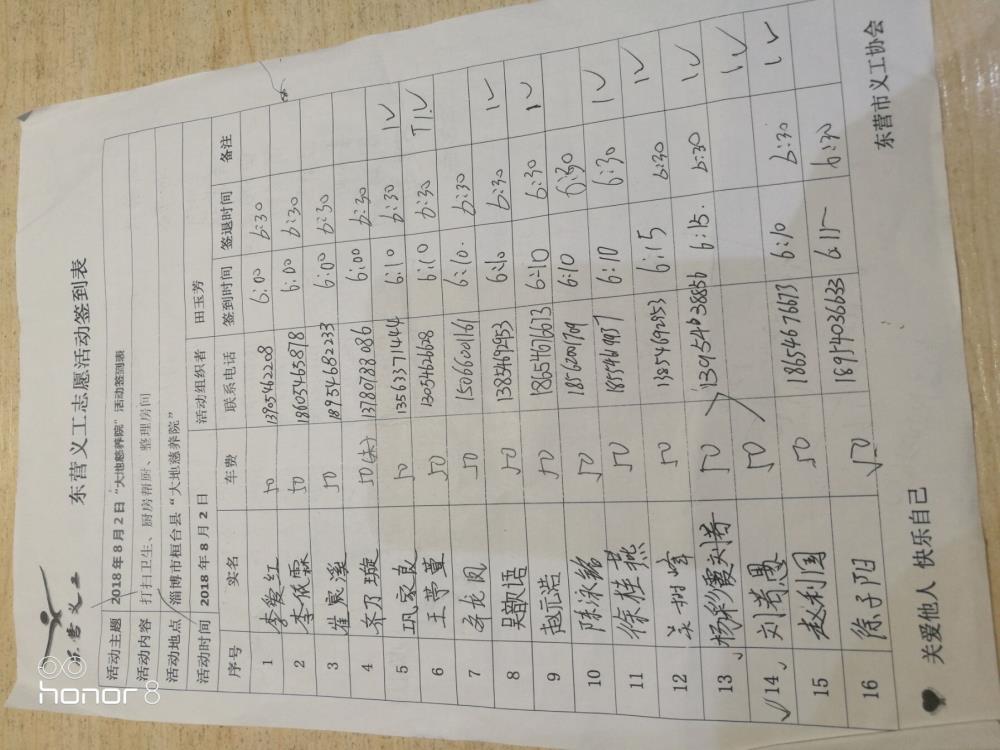 东营义工
东营义工志愿活动签到表
活动主题 2018年8月2日“大地慈养院”活动签到表
活动内容 打扫卫生、厨房帮厨、整理房间
活动地点 淄博市桓台县“大地慈养院”
活动时间 2018年8月2日 活动组织者 田玉芳
序号 实名 车费 联系电话 签到时间 签退时间 备注
1 李爱红 50 13905462208 6:00 6:30
2 李依霖 50 18605465878 6:00 6:30
3 崔宸溪 50 18954682233 6:00 6:30
4 齐乃璇 50 13780788086 6:00 6:30
5 巩家良 50 13563371444 6:10 6:30
6 王苧萱 50 13054626628 6:10 6:30
7 辛龙凤 50 15066001161 6:10 6:30
8 吴歆语 50 13854692953 6:10 6:30
9 赵元浩 50 18654676673 6:10 6:30
10 50 18562001709 6:10 6:30
11 徐桂燕 50 6:10 6:30
12 树峰 50 13854692953 6:15 6:30
13 杨彩霞 50 13954638856 6:15 6:30
14 50
15 赵利国 50 18654676673 6:10 6:30
16 徐子阳 50 6:30
关爱他人 快乐自己
东营市义工协会
honor 8